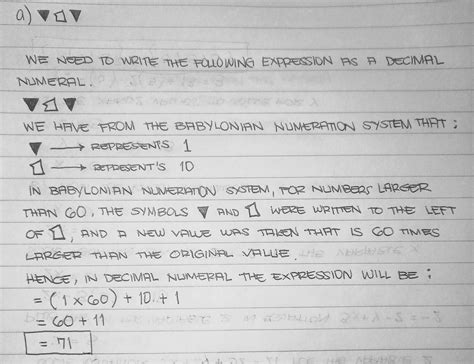 a) ▼ ⇧ ▼
WE NEED TO WRITE THE FOLLOWING EXPRESSION AS A DECIMAL
NUMERAL.
▼ ⇧ ▼
WE HAVE FROM THE BABYLONIAN NUMERATION SYSTEM THAT :
▼ → REPRESENTS 1
⇧ → REPRESENT'S 10
IN BABYLONIAN NUMERATION SYSTEM, FOR NUMBERS LARGER
THAN 60, THE SYMBOLS ▼ AND ⇧ WERE WRITTEN TO THE LEFT
OF ⇧, AND A NEW VALUE WAS TAKEN THAT IS 60 TIMES
LARGER THAN THE ORIGINAL VALUE.
HENCE, IN DECIMAL NUMERAL THE EXPRESSION WILL BE :
= (1 x 60) + 10 + 1
= 60 + 11
= 71